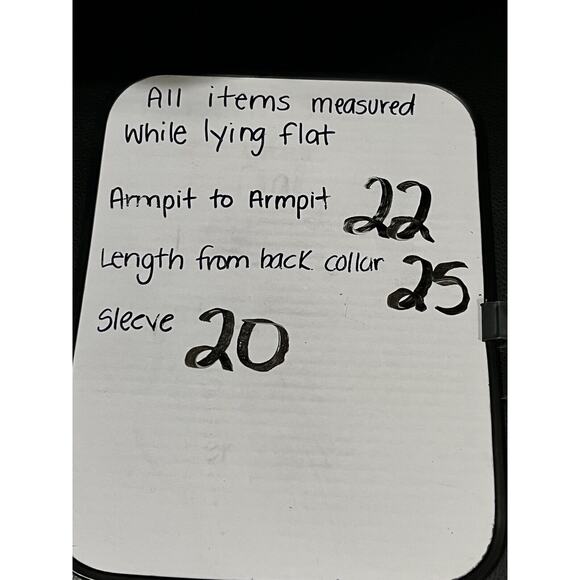 All items measured
while lying flat
Armpit to Armpit 22
Length from back collar 25
Sleeve 20